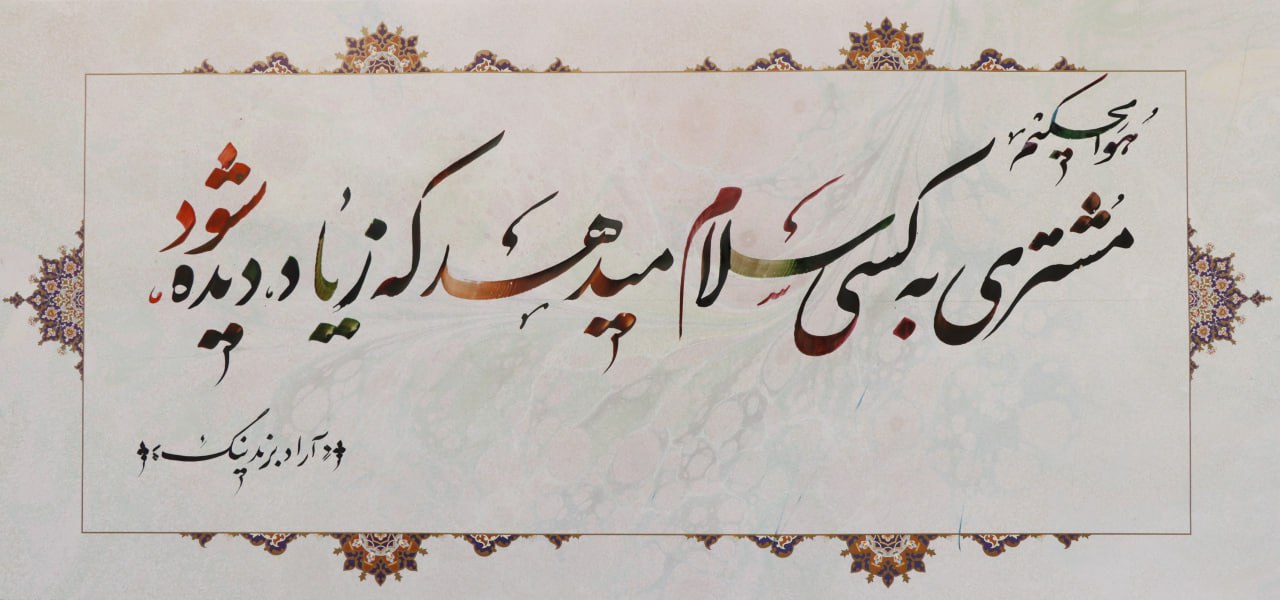 هوالحکیم
مشتری به کسی سلام میدهد که زیاد دیده شود
«آراد برندینگ»